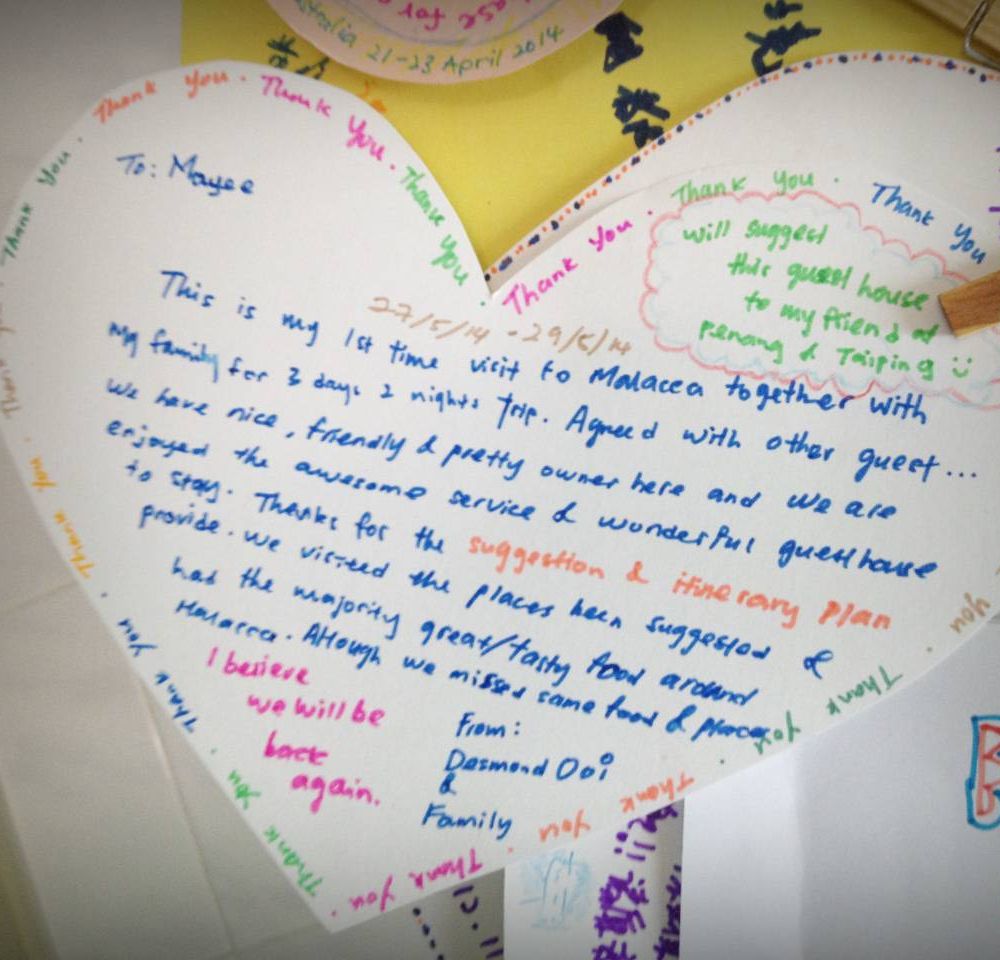 Australia 21-23 April 2014
Thank You . Thank You . Thank You . Thank You . Thank You . Thank You
To: Mayee
will suggest
this guest house
to my friend at
Penang & Taiping
27/5/14 - 29/5/14
This is my 1st time visit to Malacca together with
my family for 3 days 2 nights trip. Agreed with other guest...
We have nice, friendly & pretty owner here and we are
enjoyed the awesome service & wonderful guest house
to stay. Thanks for the suggestion & itinerary plan
provide. we visited the places been suggested &
had the majority great/tasty food around
Malacca. Although we missed some food & places
I believe
we will be
back
again.
From:
Desmond Ooi
&
Family
Thank You . Thank You . Thank You . Thank You . Thank You . Thank You . Thank You